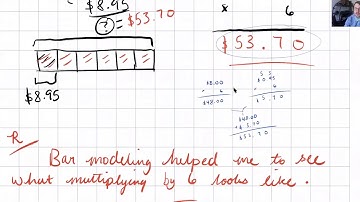 $8.95
? = $53.70
x 6
$53.70
$8.95
$8.00
x 6
$48.00
5 3
$0.95
x 6
$5.70
$48.00
+ $5.70
$53.70
R/
Bar modeling helped me to see
what multiplying by 6 looks like.